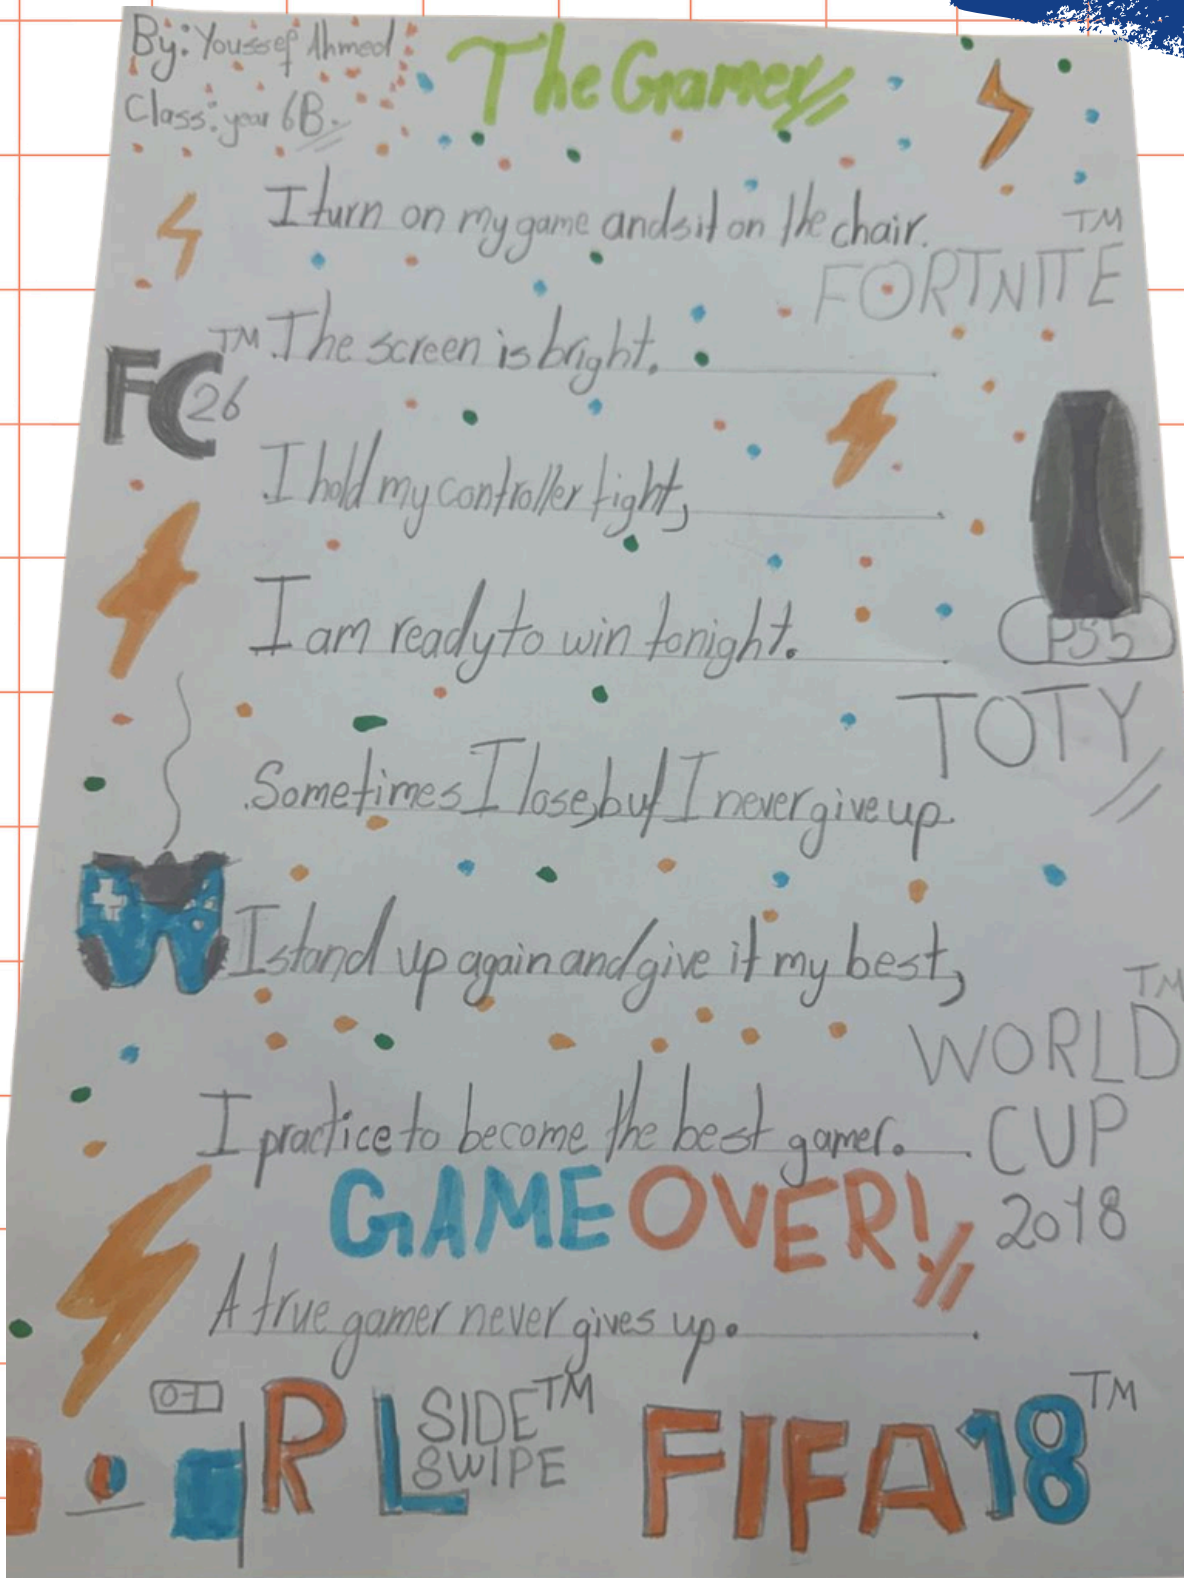 By: Youssef Ahmed
The Gamer
Class: year 6B.
I turn on my game and sit on the chair.
TM
FORTNITE
The screen is bright.
FC TM 26
I hold my controller tight,
I am ready to win tonight.
PS5
TOTY
Sometimes I lose, but I never give up.
I stand up again and give it my best,
TM
WORLD
CUP
2018
I practice to become the best gamer.
GAME OVER!
A true gamer never gives up.
0-1
RL SIDE SWIPE TM
FIFA 18 TM